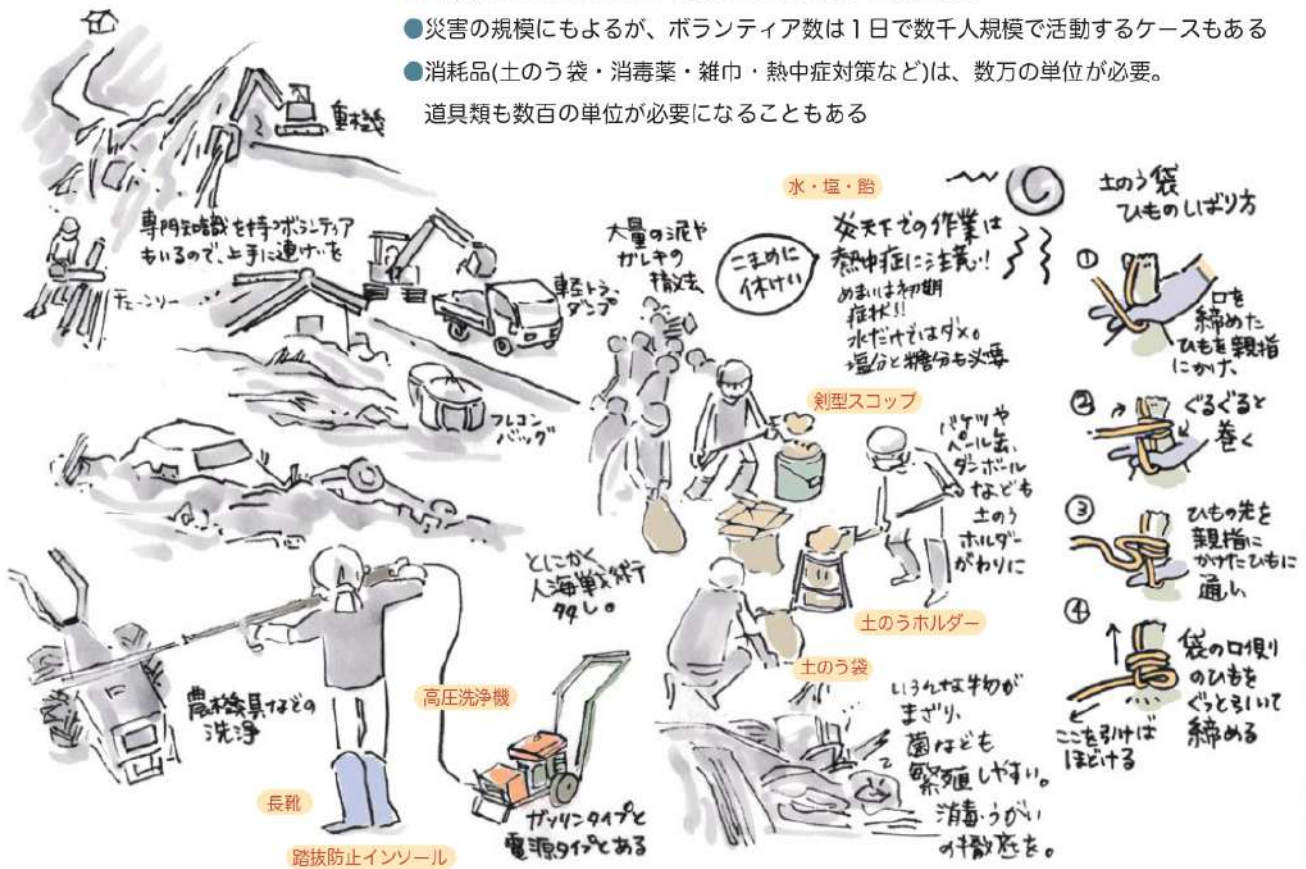 ●災害の規模にもよるが、ボランティア数は1日で数千人規模で活動するケースもある
●消耗品(土のう袋・消毒薬・雑巾・熱中症対策など)は、数万の単位が必要。
道具類も数百の単位が必要になることもある
重機
専門知識を持つボランティア
もいるので、上手に連けいを
チェーンソー
大量の泥や
ガレキの
撤去
軽トラ・
ダンプ
フレコン
バッグ
水・塩・飴
こまめに
休けい
炎天下での作業は
熱中症に注意!!
めまいは初期
症状!!
水だけではダメ。
塩分と糖分も必要
剣型スコップ
バケツや
ペール缶、
ダンボール
なども
土のう
ホルダー
がわりに
土のうホルダー
とにかく
人海戦術で
農機具などの
洗浄
高圧洗浄機
長靴
踏抜防止インソール
ガソリンタイプと
電源タイプとある
土のう袋
いろんな物が
まざり、
菌なども
繁殖しやすい。
消毒・うがい
の徹底を。
土のう袋
ひものしばり方
①
口を
締めた
ひもを親指
にかけ、
②
ぐるぐると
巻く
③
ひもの先を
親指に
かけたひもに
通し
④
袋の口側
のひもを
ぐっと引いて
締める
ここを引けば
ほどける